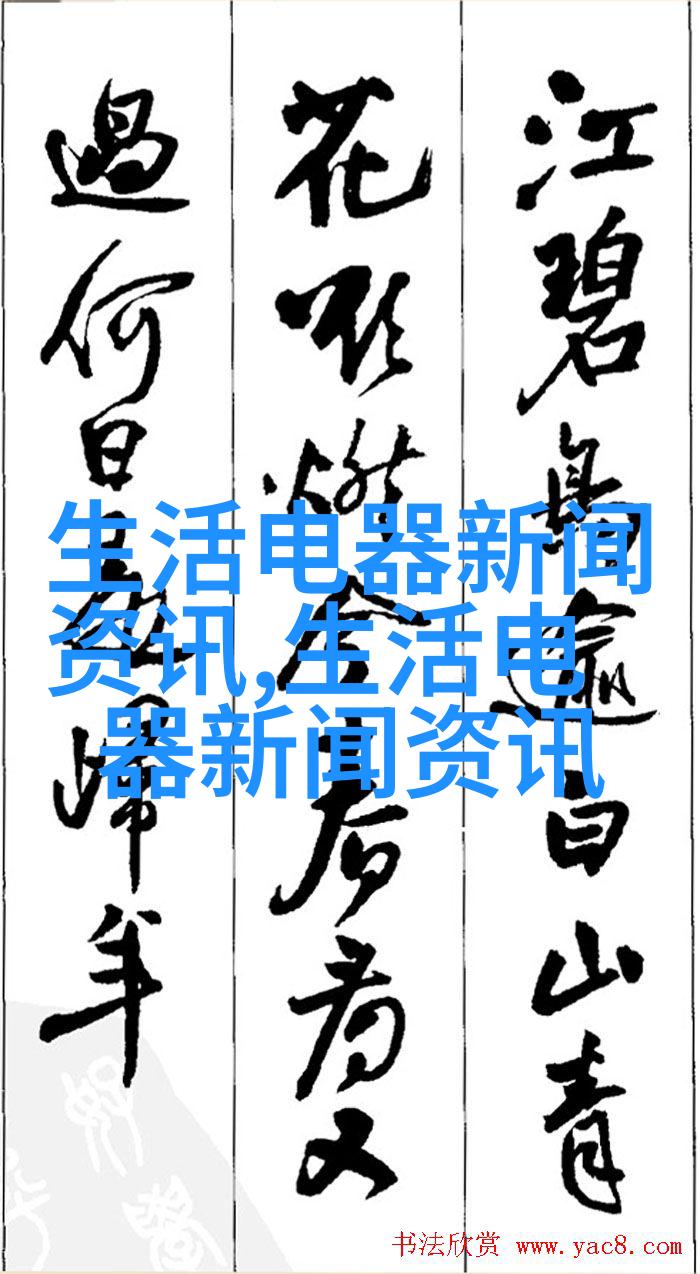 江碧鳥逾白山青
花欲燃今春看又
過何日是歸年
生活电器新闻
资讯,生活电
器新闻资讯
书法欣赏 www.yac8.com